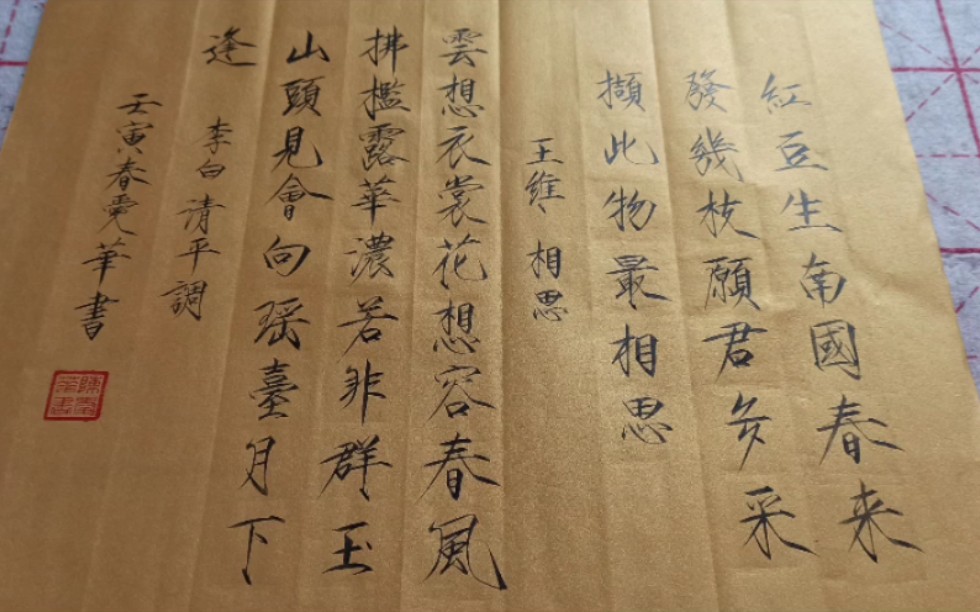 紅豆生南國春来
發幾枝願君多采
擷此物最相思
王維 相思
雲想衣裳花想容春風
拂檻露華濃若非群玉
山頭見會向瑶臺月下
逢
李白 清平調
壬寅春 華書